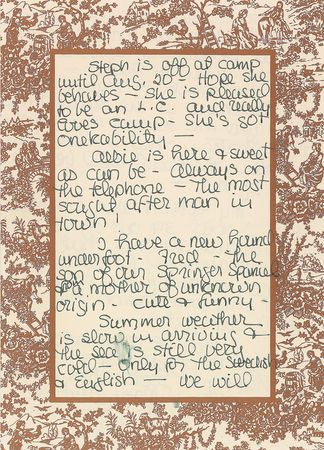 Steph is off at camp
until Aug. 20 Hope she
behaves - she is pleased
to be an L.C. and really
loves camp - she's got
onekability —
Albie is here & sweet
as can be - always on
the telephone - the most
sought after man in
town!
I have a new hound
underfoot - Fred - the
son of our Springer Spaniel
& a mother of unknown
origin - cute & funny -
Summer weather
is slow in arriving &
the sea is still very
cold - only for the Swedish
& English — we will